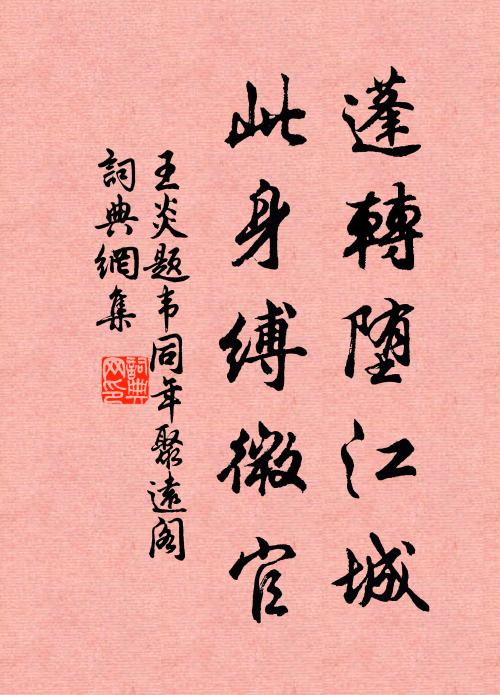 蓬轉堕江城
此身縛微官
王炎題韦同年聚遠阁
詞典網集
詞典网印